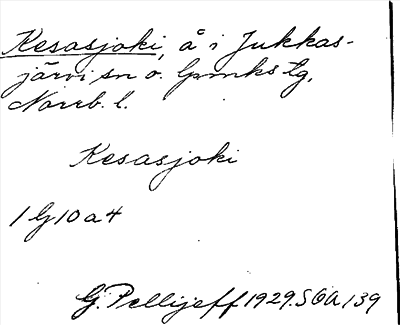 Kesasjoki, å i Jukkas-
järvi sn o. lpmks tg,
Norrb. l.
Kesasjoki
1 G 10 a 4
G. Pellijeff 1929. SOA, 139